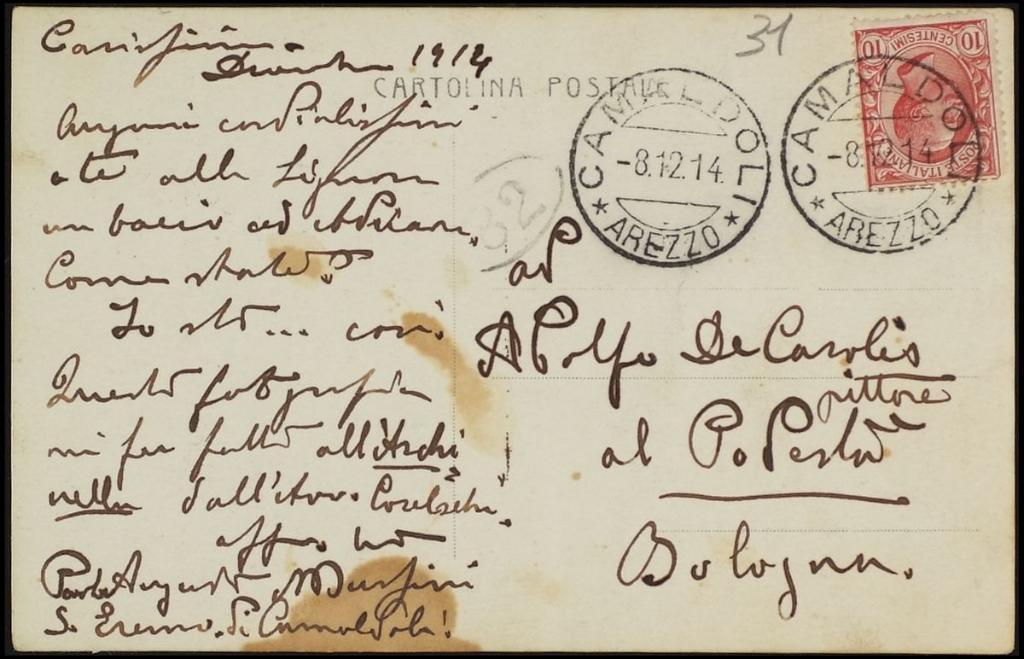 Carissimo
1914
Auguri cordialissimi
alla Signora
un bacio ad Adriana.
Come state?
Io sto... così.
Questa fotografia
mi fu fatta all'Archi
nella dall'Avv.
affmo
Augusto Mussini
S. Eremo di Camaldoli!
CARTOLINA POSTALE
31
32
CAMALDOLI
-8.12.14.
* AREZZO *
CAMALDOLI
-8.12.14
* AREZZO *
POSTE ITALIANE
CENTESIMI
10 10
ad
Adolfo De Carolis
pittore
al Podestà
Bologna.